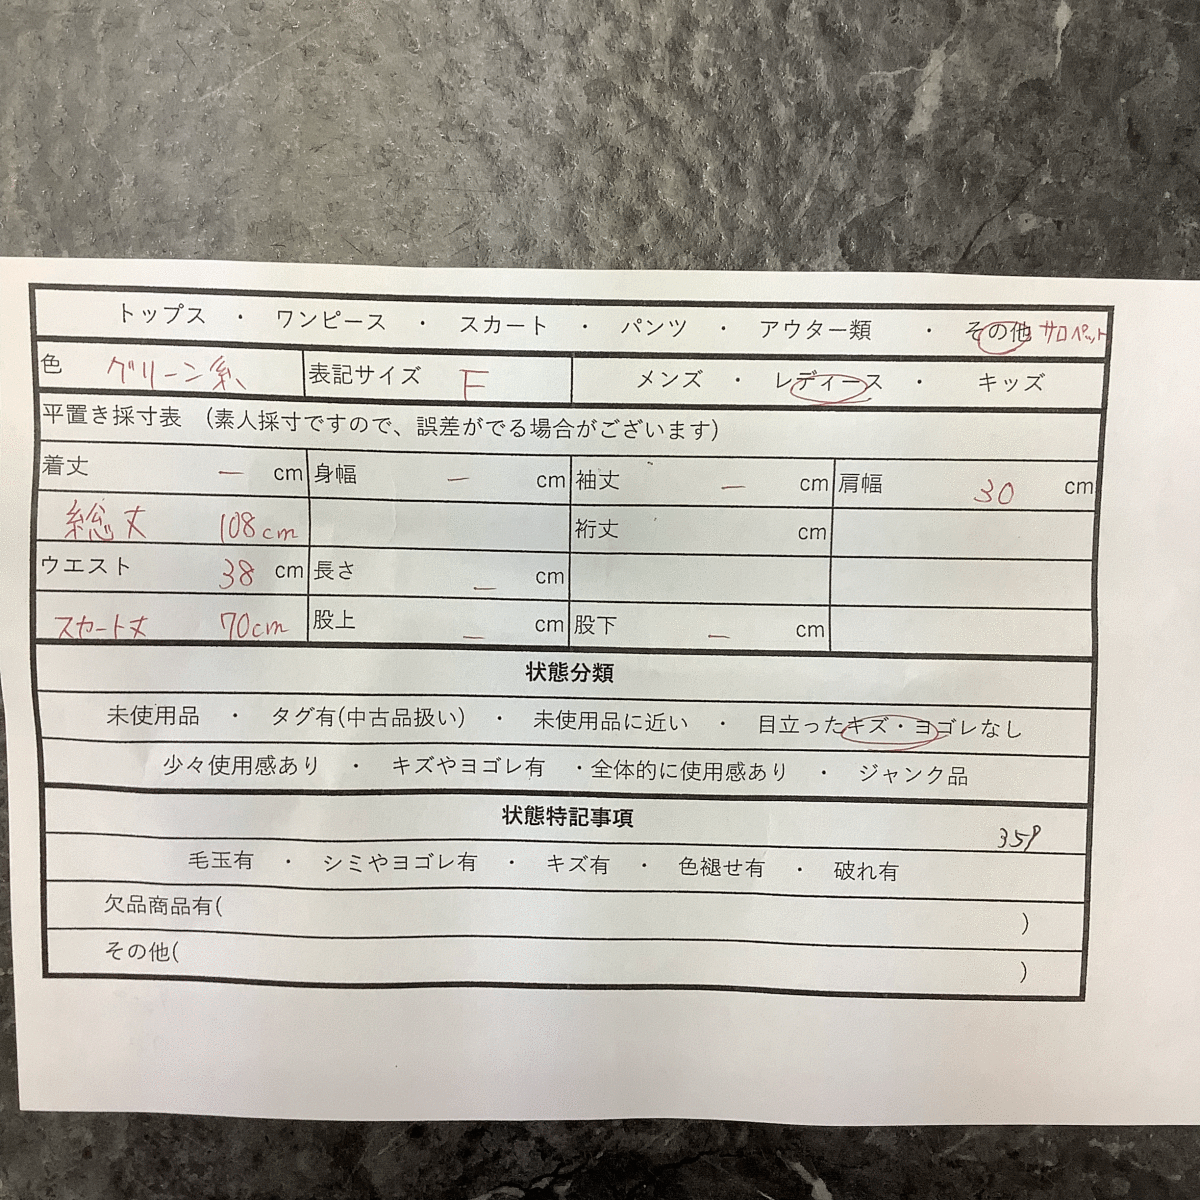 トップス ・ ワンピース ・ スカート ・ パンツ ・ アウター類 ・ その他 サロペット
色 グリーン系 表記サイズ F メンズ ・ レディース ・ キッズ
平置き採寸表 (素人採寸ですので、誤差がでる場合がございます)
着丈 ー cm 身幅 ー cm 袖丈 ー cm 肩幅 30 cm
総丈 108cm 裄丈 cm
ウエスト 38 cm 長さ ー cm
スカート丈 70cm 股上 ー cm 股下 ー cm
状態分類
未使用品 ・ タグ有(中古品扱い) ・ 未使用品に近い ・ 目立ったキズ・ヨゴレなし
少々使用感あり ・ キズやヨゴレ有 ・全体的に使用感あり ・ ジャンク品
状態特記事項
359
毛玉有 ・ シミやヨゴレ有 ・ キズ有 ・ 色褪せ有 ・ 破れ有
欠品商品有( )
その他( )